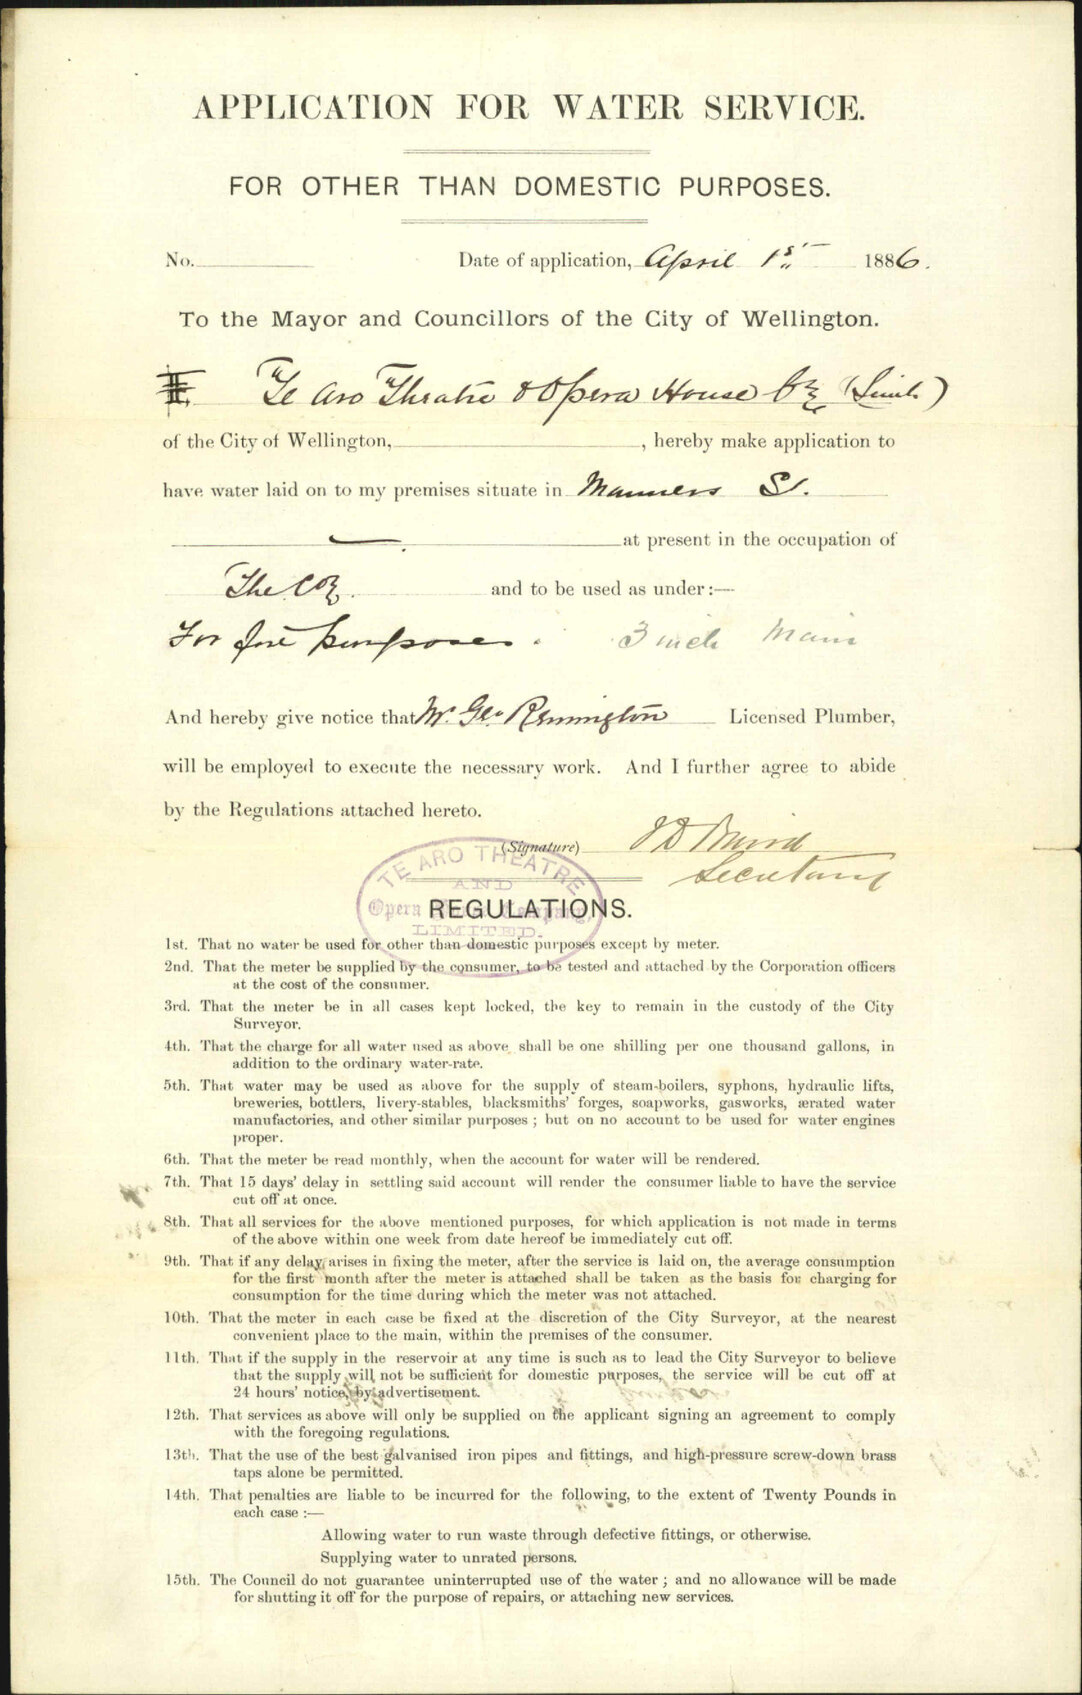 APPLICATION FOR WATER SERVICE.
FOR OTHER THAN DOMESTIC PURPOSES.
No. Date of application, April 1st 1886.
To the Mayor and Councillors of the City of Wellington.
I, Te Aro Theatre & Opera House Coy (Limd)
of the City of Wellington, , hereby make application to
have water laid on to my premises situate in Manners St.
at present in the occupation of
The Coy. and to be used as under:—
For fire purposes. 3 inch Main
And hereby give notice that Mr. Geo. Remington Licensed Plumber,
will be employed to execute the necessary work. And I further agree to abide
by the Regulations attached hereto.
(Signature) J D Baird
Secretary
TE ARO THEATRE
AND
Opera House Company,
LIMITED.
REGULATIONS.
1st. That no water be used for other than domestic purposes except by meter.
2nd. That the meter be supplied by the consumer, to be tested and attached by the Corporation officers
at the cost of the consumer.
3rd. That the meter be in all cases kept locked, the key to remain in the custody of the City
Surveyor.
4th. That the charge for all water used as above shall be one shilling per one thousand gallons, in
addition to the ordinary water-rate.
5th. That water may be used as above for the supply of steam-boilers, syphons, hydraulic lifts,
breweries, bottlers, livery-stables, blacksmiths' forges, soapworks, gasworks, ærated water
manufactories, and other similar purposes ; but on no account to be used for water engines
proper.
6th. That the meter be read monthly, when the account for water will be rendered.
7th. That 15 days' delay in settling said account will render the consumer liable to have the service
cut off at once.
8th. That all services for the above mentioned purposes, for which application is not made in terms
of the above within one week from date hereof be immediately cut off.
9th. That if any delay arises in fixing the meter, after the service is laid on, the average consumption
for the first month after the meter is attached shall be taken as the basis for charging for
consumption for the time during which the meter was not attached.
10th. That the meter in each case be fixed at the discretion of the City Surveyor, at the nearest
convenient place to the main, within the premises of the consumer.
11th. That if the supply in the reservoir at any time is such as to lead the City Surveyor to believe
that the supply will not be sufficient for domestic purposes, the service will be cut off at
24 hours' notice, by advertisement.
12th. That services as above will only be supplied on the applicant signing an agreement to comply
with the foregoing regulations.
13th. That the use of the best galvanised iron pipes and fittings, and high-pressure screw-down brass
taps alone be permitted.
14th. That penalties are liable to be incurred for the following, to the extent of Twenty Pounds in
each case :—
Allowing water to run waste through defective fittings, or otherwise.
Supplying water to unrated persons.
15th. The Council do not guarantee uninterrupted use of the water ; and no allowance will be made
for shutting it off for the purpose of repairs, or attaching new services.